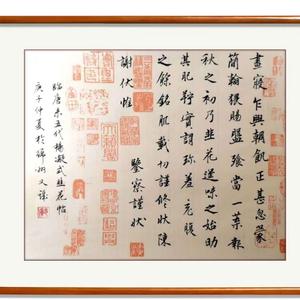 晝寢乍興朝飢正甚忽蒙
簡翰猥賜盤飧當一葉報
秋之初乃韭花逞味之始助
其肥羜實謂珍羞充腹
之餘銘肌載切謹修狀陳
謝伏惟
鑒察謹狀
臨唐末五代楊凝式韭花帖
庚子仲夏於錦州文